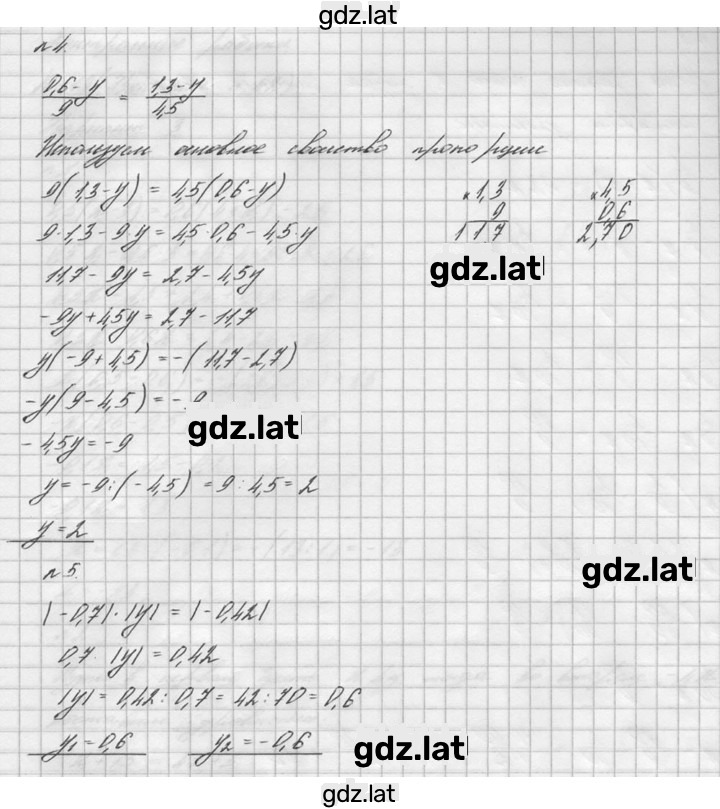 gdz.lat
№4.
(0,6 - y)/9 = (1,3 - y)/4,5
Используем основное свойство пропорции
9(1,3-y) = 4,5(0,6-y)
×1,3 ×4,5
9 0,6
9·1,3 - 9·y = 4,5·0,6 - 4,5·y
11,7 2,70
gdz.lat
11,7 - 9y = 2,7 - 4,5y
-9y + 4,5y = 2,7 - 11,7
y(-9 + 4,5) = -(11,7 - 2,7)
-y(9 - 4,5) = -9
gdz.lat
-4,5y = -9
y = -9:(-4,5) = 9 : 4,5 = 2
y = 2
№5.
gdz.lat
|-0,7|·|y| = |-0,42|
0,7·|y| = 0,42
|y| = 0,42 : 0,7 = 42 : 70 = 0,6
y₁ = 0,6 y₂ = -0,6
gdz.lat
gdz.lat